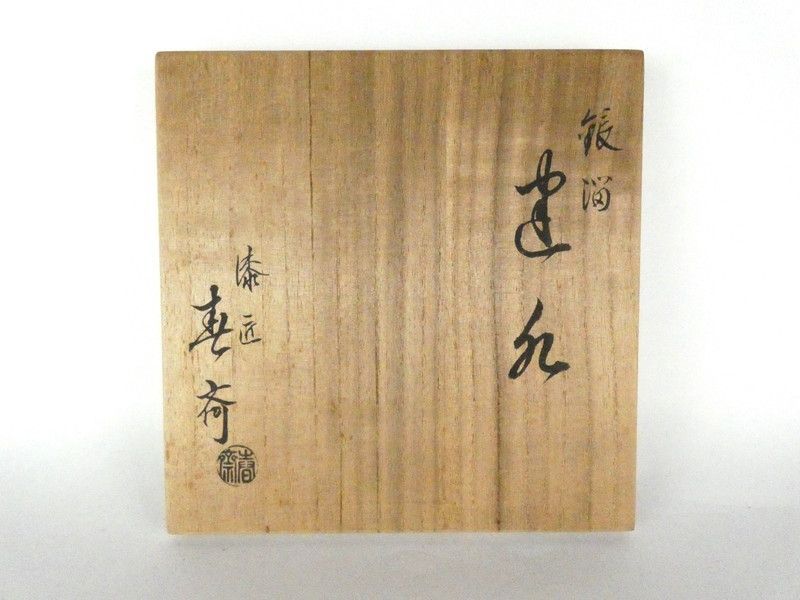 銀溜
建水
漆匠
春斎
春斎